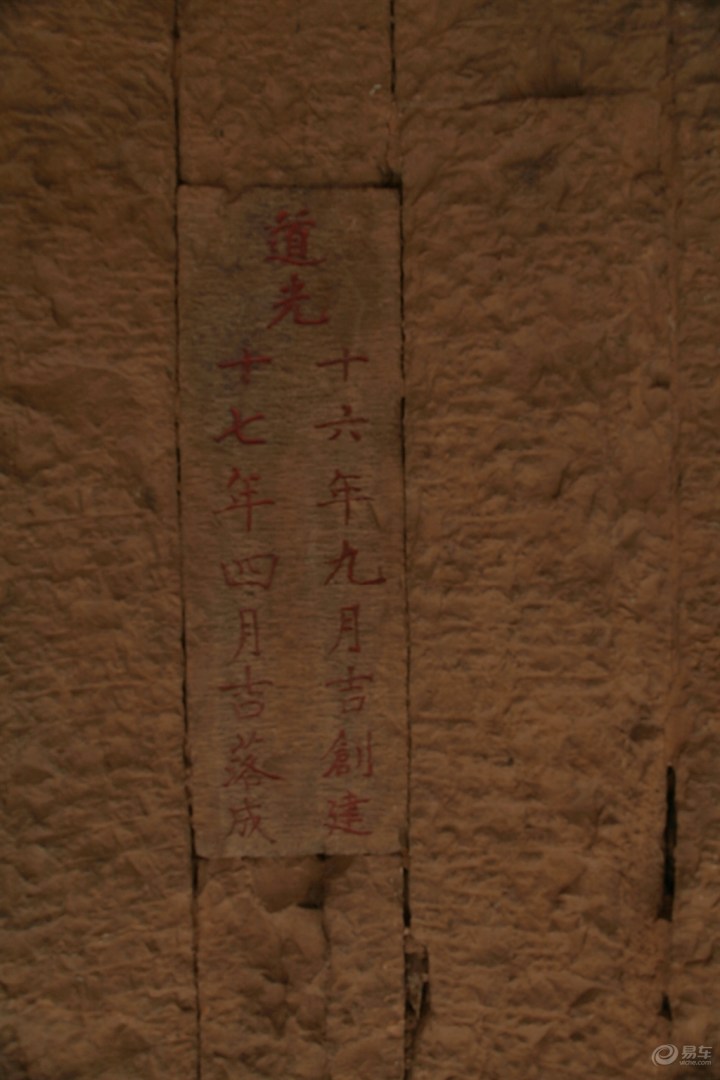 道光
十六年九月吉創建
十七年四月吉落成
易车
yiche.com